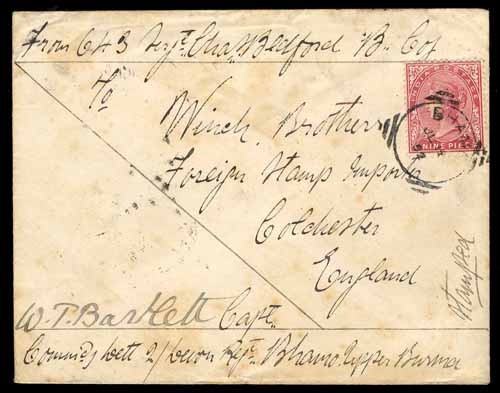 From 643 Serjt. Chas. Bedford B. Coy.
To
Winch Brothers
Foreign Stamp Imports
Colchester
England
Stamped
W. T. Bartlett Capt.
Commdg Dett 2/Devon Regt. Bhamo. Upper Burma
NINE PIES